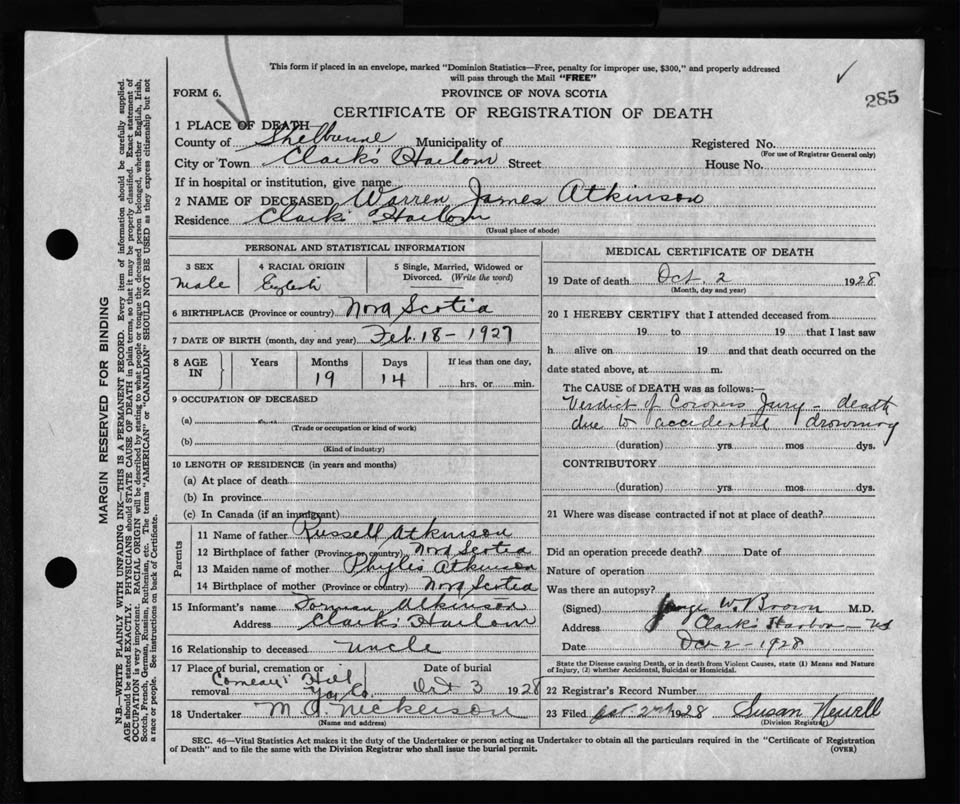 This form if placed in an envelope, marked "Dominion Statistics—Free, penalty for improper use, $300," and properly addressed
will pass through the Mail "FREE"
FORM 6.
PROVINCE OF NOVA SCOTIA
285
CERTIFICATE OF REGISTRATION OF DEATH
1 PLACE OF DEATH
County of Shelburne Municipality of Registered No.
(For use of Registrar General only)
City or Town Clark's Harbour Street House No.
If in hospital or institution, give name
2 NAME OF DECEASED Warren James Atkinson
Residence Clark's Harbour
(Usual place of abode)
PERSONAL AND STATISTICAL INFORMATION
3 SEX 4 RACIAL ORIGIN 5 Single, Married, Widowed or
Divorced. (Write the word)
Male English
6 BIRTHPLACE (Province or country) Nova Scotia
7 DATE OF BIRTH (month, day and year) Feb. 18 - 1927
8 AGE Years Months Days If less than one day,
IN 19 14 hrs. or min.
9 OCCUPATION OF DECEASED
(a)
(Trade or occupation or kind of work)
(b)
(Kind of industry)
10 LENGTH OF RESIDENCE (in years and months)
(a) At place of death
(b) In province
(c) In Canada (if an immigrant)
Parents
11 Name of father Russell Atkinson
12 Birthplace of father (Province or country) Nova Scotia
13 Maiden name of mother Phylis Atkinson
14 Birthplace of mother (Province or country) Nova Scotia
15 Informant's name Atkinson
Address Clark's Harbour
16 Relationship to deceased uncle
17 Place of burial, cremation or Date of burial
removal Comeau's Hill Yar. Co. Oct 3 1928
18 Undertaker M. A. Nickerson
(Name and address)
MEDICAL CERTIFICATE OF DEATH
19 Date of death Oct. 2 1928
(Month, day and year)
20 I HEREBY CERTIFY that I attended deceased from
19 to 19 that I last saw
h alive on 19 and that death occurred on the
date stated above, at m.
The CAUSE of DEATH was as follows:—
Verdict of Coroners Jury - death
due to accidental drowning
(duration) yrs. mos dys.
CONTRIBUTORY
(duration) yrs mos dys.
21 Where was disease contracted if not at place of death?
Did an operation precede death? Date of
Nature of operation
Was there an autopsy?
(Signed) George W. Brown M.D.
Address Clark's Harbour - NS
Date Oct 2 - 1928
State the Disease causing Death, or in death from Violent Causes, state (1) Means and Nature
of Injury, (2) whether Accidental, Suicidal or Homicidal.
22 Registrar's Record Number
23 Filed Oct. 2nd 1928 Susan Newell
(Division Registrar)
SEC. 46—Vital Statistics Act makes it the duty of the Undertaker or person acting as Undertaker to obtain all the particulars required in the "Certificate of Registration
of Death" and to file the same with the Division Registrar who shall issue the burial permit.
(OVER)
MARGIN RESERVED FOR BINDING
N.B.—WRITE PLAINLY WITH UNFADING INK—THIS IS A PERMANENT RECORD. Every item of information should be carefully supplied.
AGE should be stated EXACTLY. PHYSICIANS should STATE CAUSE OF DEATH in plain terms, so that it may be properly classified. Exact statement of
OCCUPATION is very important. RACIAL ORIGIN will be described by stating to what people or tongue the deceased person belonged, whether English, Irish,
Scotch, French, German, Russian, Ruthenian, etc. The terms "AMERICAN" or "CANADIAN" SHOULD NOT BE USED as they express citizenship but not
a race or people. See instructions on back of Certificate.